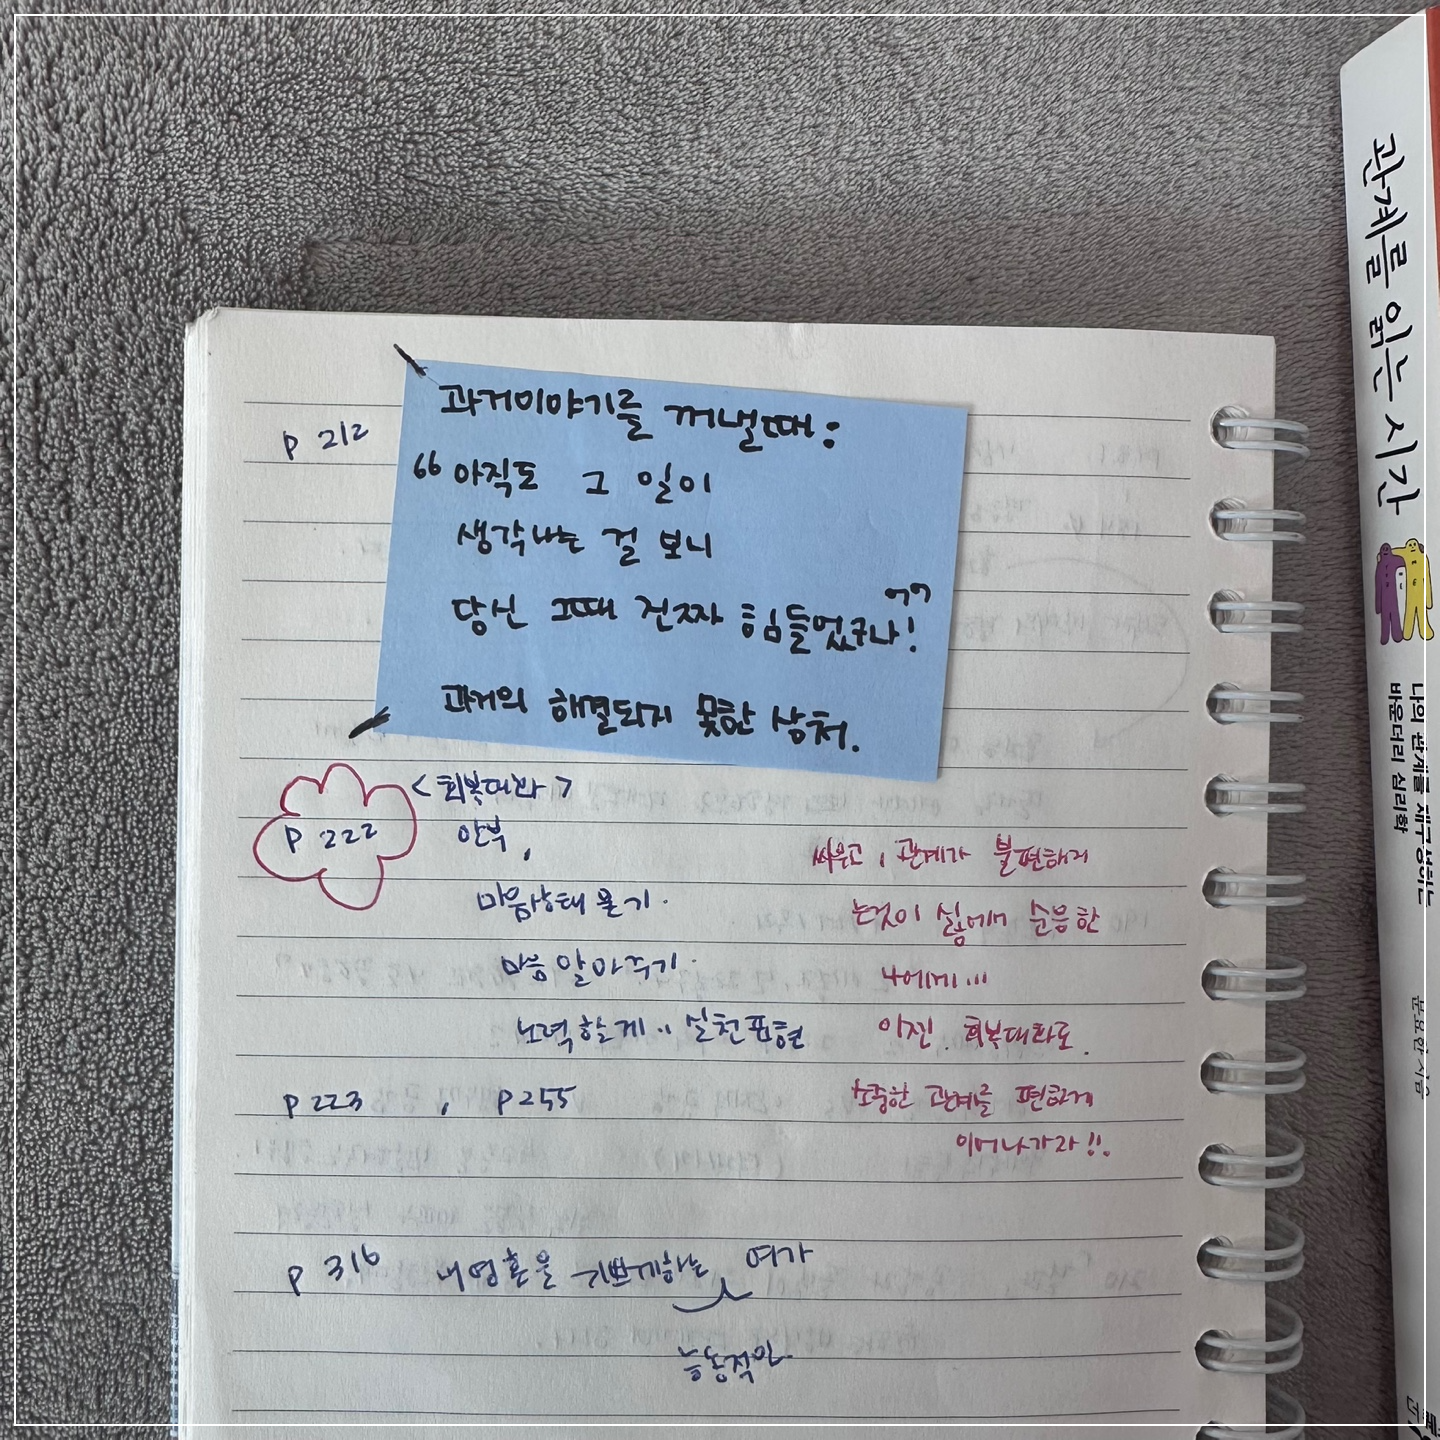 p 212
과거이야기를 꺼낼때:
“아직도 그 일이
생각나는 걸 보니
당신 그때 진짜 힘들었구나!”
과거의 해결되지 못한 상처.
p 222
<회복대화>
안부,
마음상태 묻기.
마음 알아주기.
노력할게.. 실천표현
p 223 , p 255
싸우고, 관계가 불편해지
는것이 싫음에 순응한
나에게...
이젠. 회복대화로.
소중한 관계를 편하게
이어나가라!!
p 316 내 영혼을 기쁘게하는 여가
능동적인
관계를 읽는 시간
나의 관계를 재구성하는
바운더리 심리학
문요한 지음